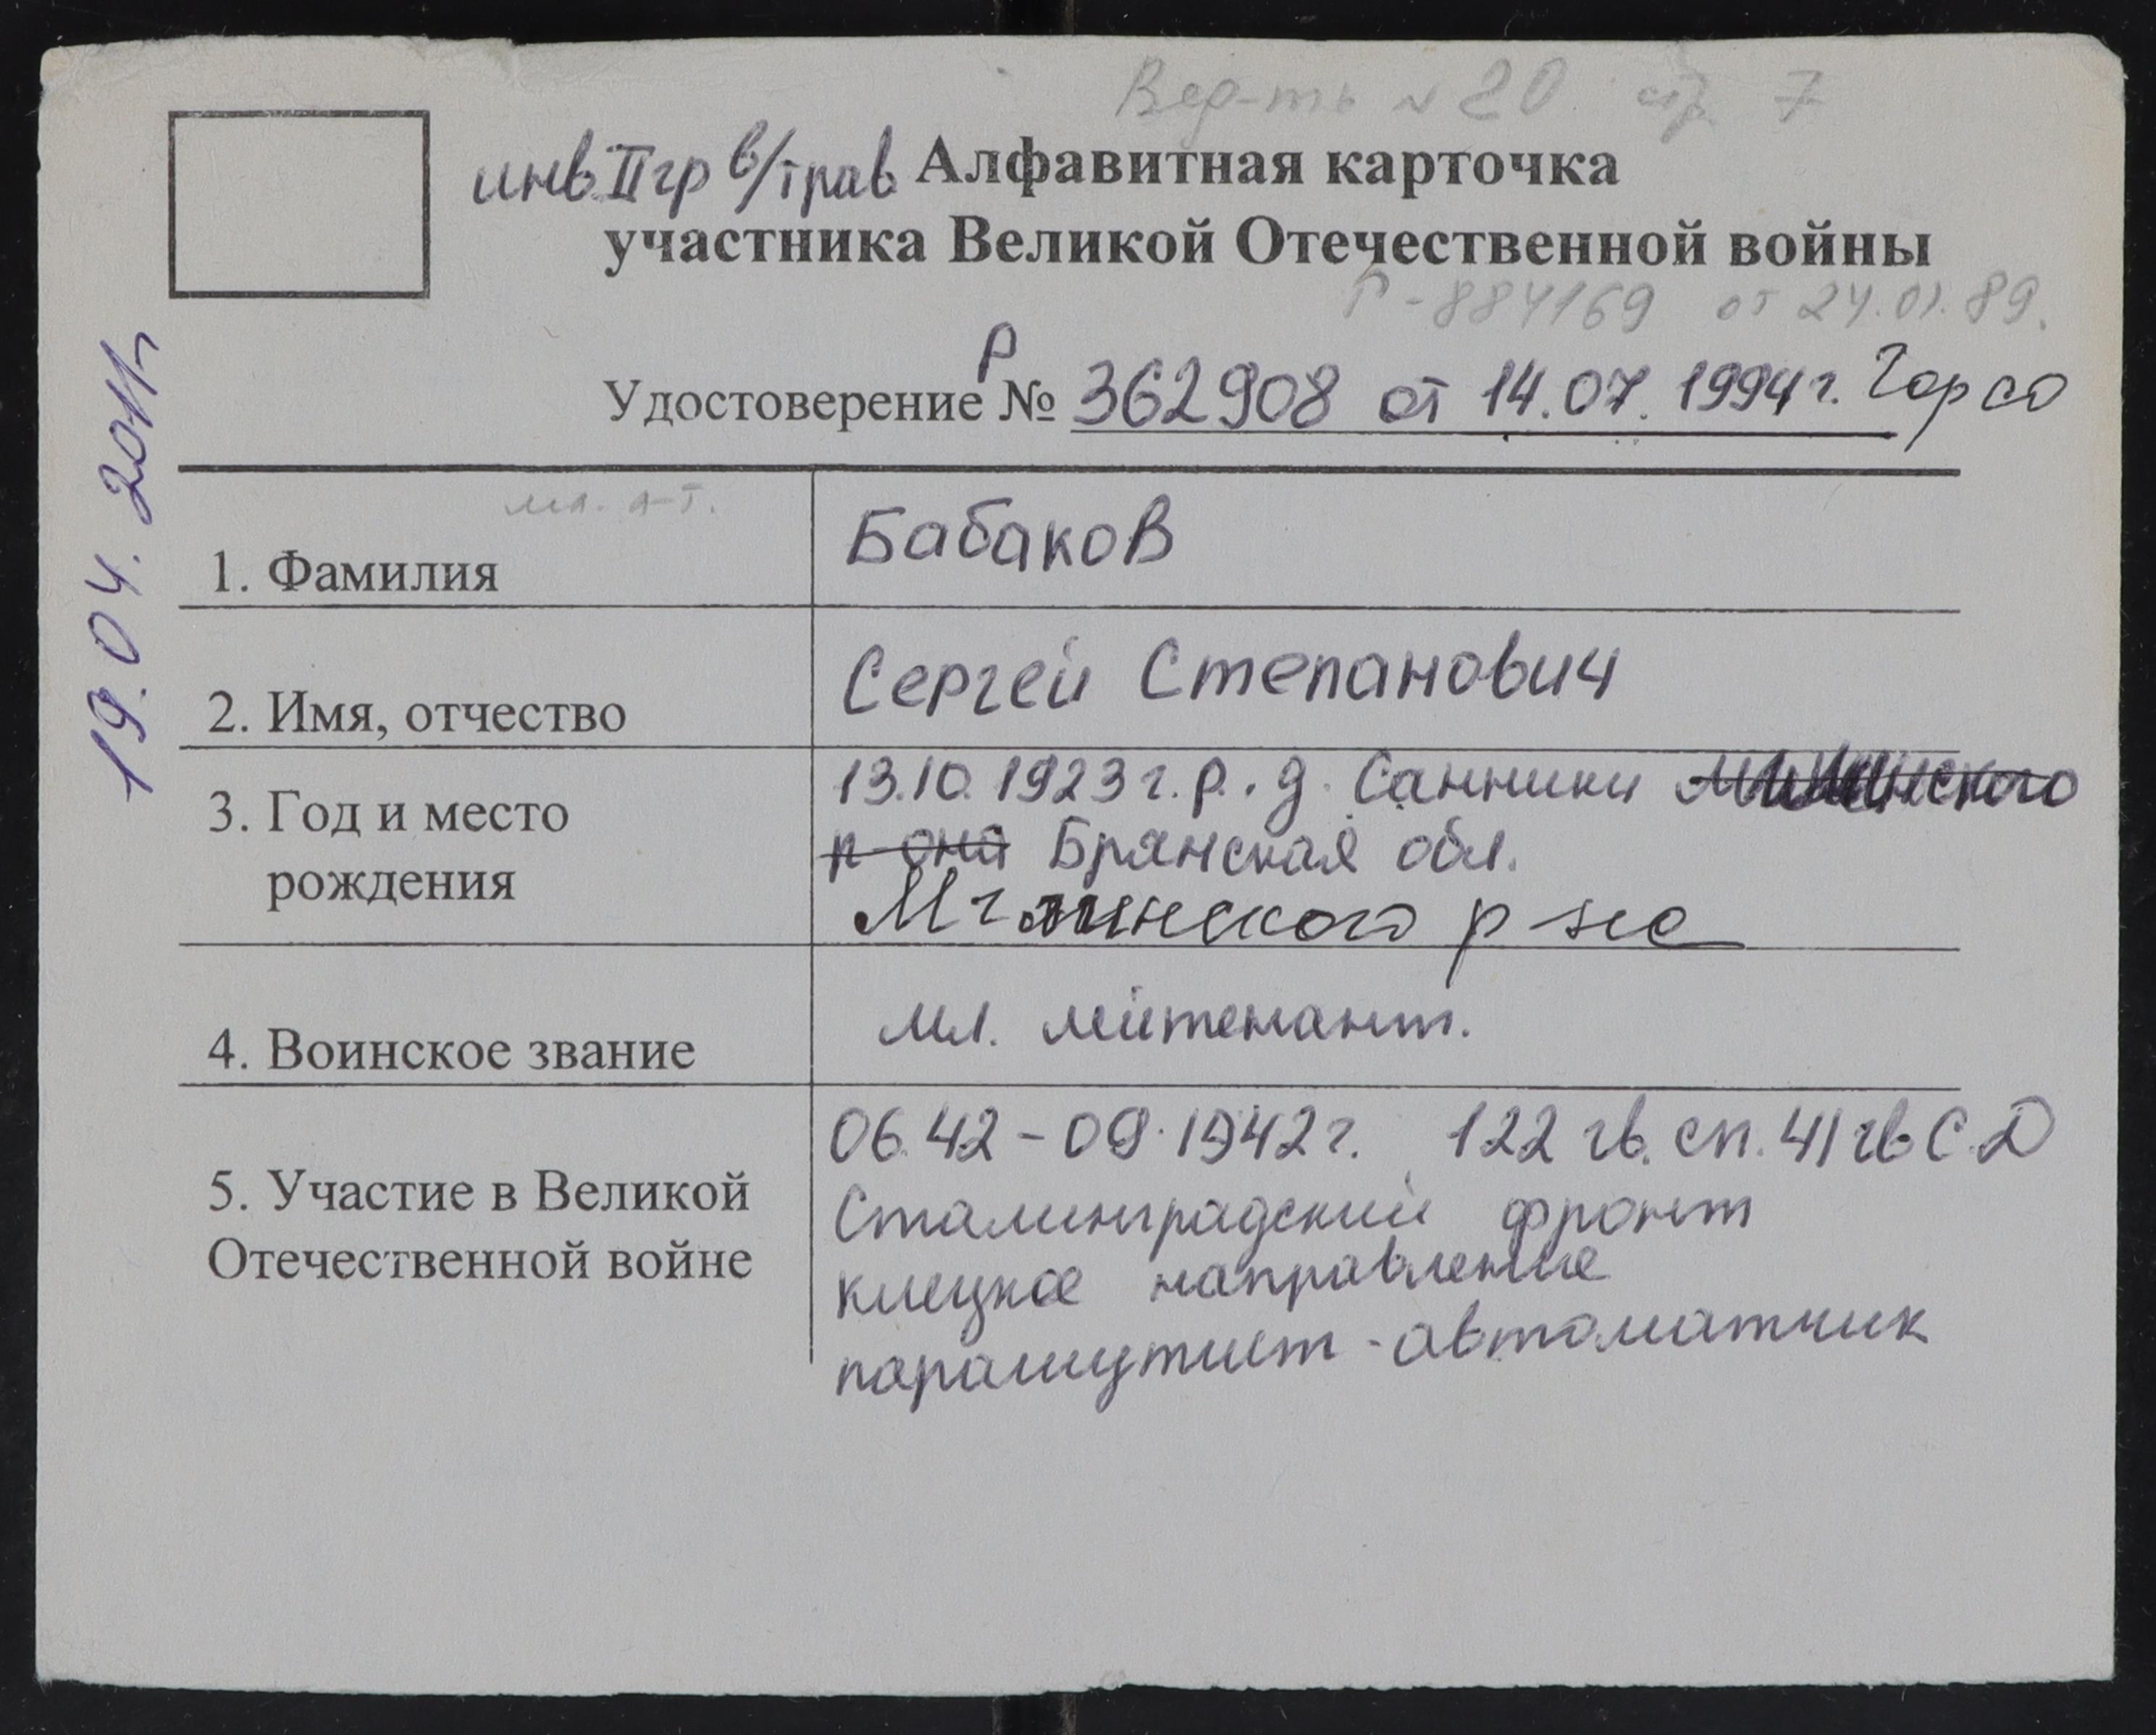 Вед-ть № 20 стр 7
инв. II гр в/трав Алфавитная карточка
участника Великой Отечественной войны
Р-884169 от 24.01.89.
Удостоверение Р № 362908 от 14.07.1994г. Горсо
19.04.2011г
мл. л-т.
1. Фамилия Бабаков
2. Имя, отчество Сергей Степанович
3. Год и место рождения 13.10.1923г.р. д. Санники
р-она Брянская обл.
Мглинского р-на
4. Воинское звание мл. лейтенант.
5. Участие в Великой Отечественной войне 06.42-09.1942г. 122 гв. сп. 41 гв С.Д
Сталинградский фронт
клецкое направление
парашутист-автоматчик